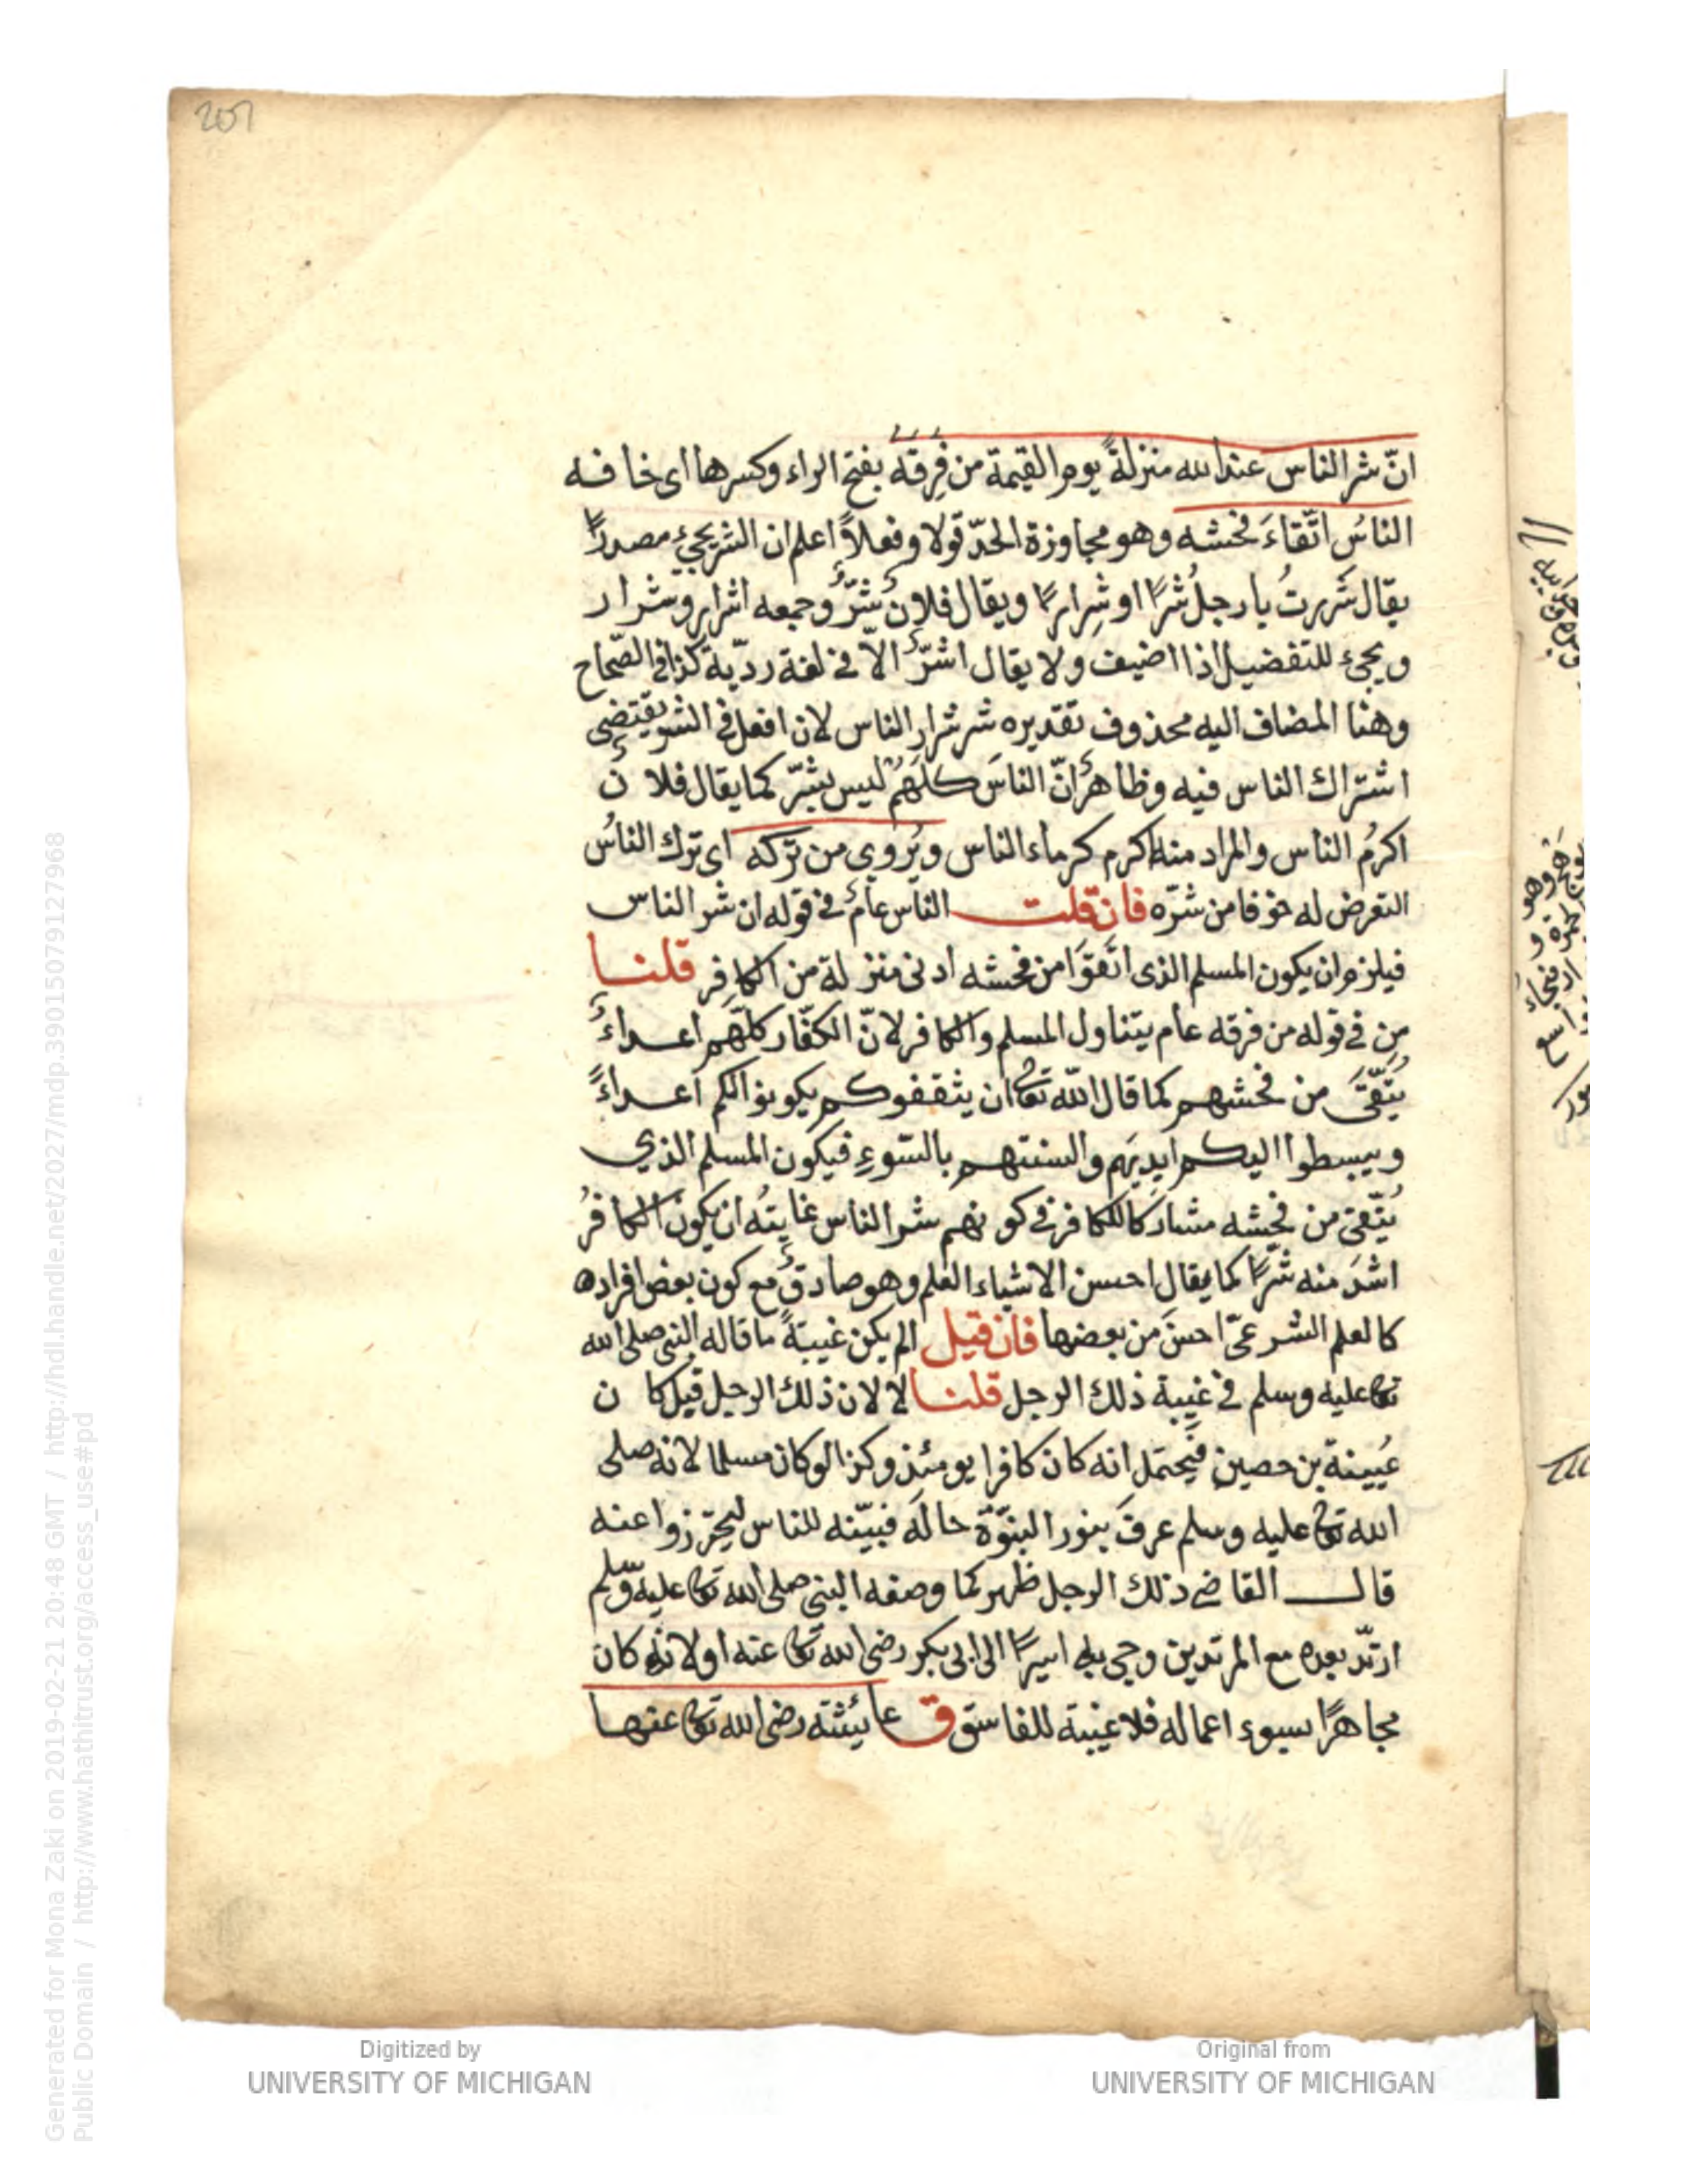 207
انّ شر الناس عند الله منزلةً يوم القيمة من فَِرقه بفتح الراء وكسرها اى خافه
الناسُ اتّقاءَ فحشه وهو مجاوزة الحدّ قولا وفعلاً اعلم ان الشر يجئ مصدرًا
يقال شَررتُ يا رجلُ شرًا او شِرارًا ويقال فلانٌ شرٌّ وجمعه اشرار وشرار
ويجئ للتفضيل اذا اضيف ولا يقال اشرّ الاّ فى لغة رديّة كذا فى الصّحاح
وهنا المضاف اليه محذوف تقديره شر شرار الناس لان افعل فى الشر يقتضى
اشتراك الناس فيه وظاهرٌ انّ الناسَ كلَهُم ليس بشرّ كما يقال فلانٌ
اكرمُ الناس والمراد منه اكرم كرماء الناس ويُروى من تركه اى ترك الناسُ
التعرض له خوفا من شرّه فان قلت الناس عامٌ فى قوله ان شر الناس
فيلزم ان يكون المسلم الذى اتَّقَوَا من فحشه ادنى منزلة من الكافر قلنا
مِن فى قوله من فرقه عام يتناول المسلم والكافر لانّ الكفّار كلّهم اعداءٌ
يُتّقَى من فحشهم كما قال الله تعا ان يثقفوكم يكونوا لكم اعداءً
ويبسطوا اليكم ايديَهم والسنتهم بالسّوءِ فيكون المسلم الذي
يُتّقى من فحشه مشاركا للكافر فى كونهم شر الناس غايتُه ان يكون الكافرُ
اشدَ منه شرًا كما يقال احسن الاشياء العلم وهو صادقٌ مع كون بعض افراده
كالعلم الشرعىّ احسنَ من بعضها فان قيل الم يكن غيبةً ما قاله النبى صلى الله
تعا عليه وسلم فى غيبة ذلك الرجل قلنا لا لان ذلك الرجل قيل كان
عُيينة بن حصين فيحتمل انه كان كافرا يومئذ وكذا لو كان مسلما لانه صلى
الله تعا عليه وسلم عرفَ بنور النبوّة حالَه فبيّنه للناس ليحترزوا عنه
قال القاضى ذلك الرجل ظهر كما وصفه النبى صلى الله تعا عليه وسلم
ارتدّ بعده مع المرتدين وجى به اسيرًا الى ابى بكر رضى الله تعا عنه او لانه كان
مجاهرًا بسوء اعماله فلا غيبة للفاسق ق عايئشة رضى الله تعا عنها
Digitized by
UNIVERSITY OF MICHIGAN
Original from
UNIVERSITY OF MICHIGAN
Generated for Mona Zaki on 2019-02-21 20:48 GMT / http://hdl.handle.net/2027/mdp.39015079127968
Public Domain / http://www.hathitrust.org/access_use#pd